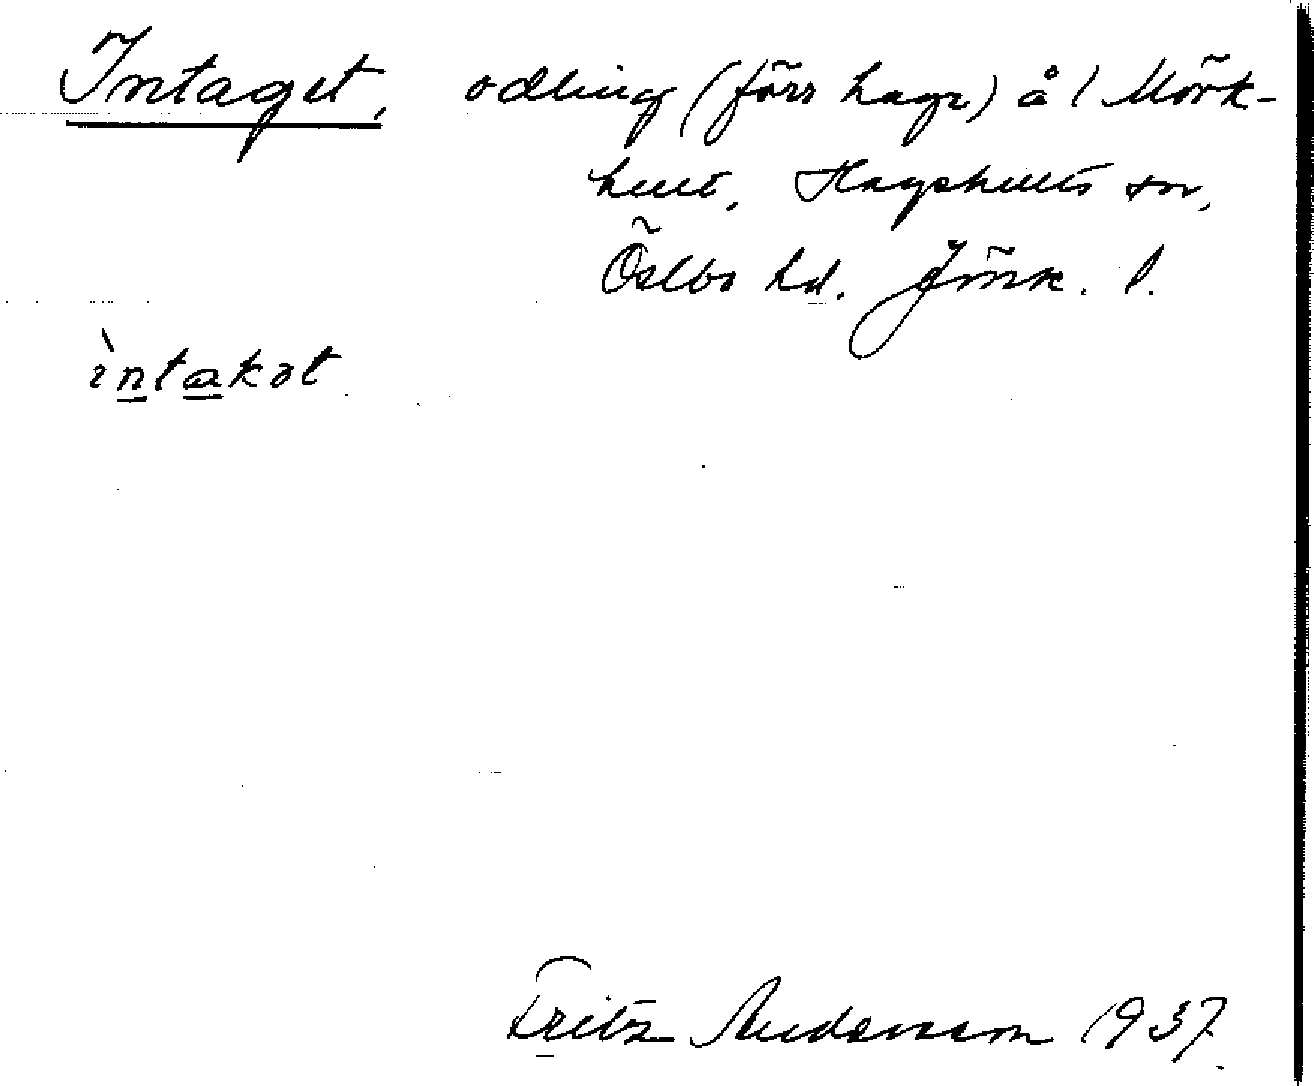 Intaget, odling (förr hage) å 1 Mörk-
hult, Hagshults sn,
Östbo hd. Jönk. l.
ìntakət
Fritz Andersson 1937